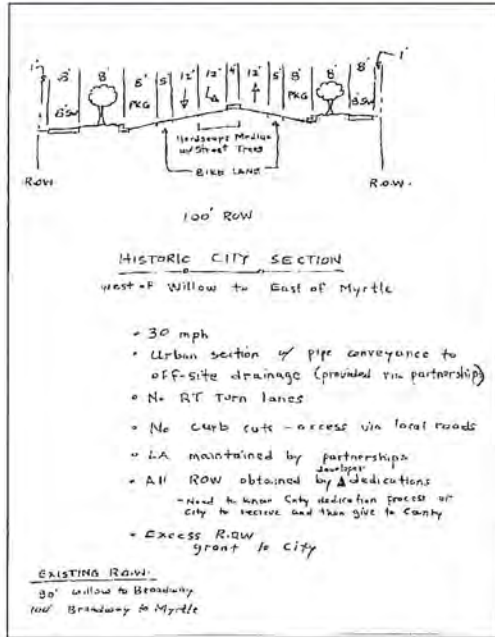 1' 8' 8' 8' 5' 12' 12' 4' 12' 5' 8' 8' 8' 1'
8'SW PKG PKG 8'SW
Hardscape Median
w/Street Trees
BIKE LANE
R.O.W. R.O.W.
100' ROW
HISTORIC CITY SECTION
west of Willow to East of Myrtle
• 30 mph
• Urban section w/ pipe conveyance to
off-site drainage (provided via partnership)
• No RT Turn lanes
• No curb cuts - access via local roads
• LA maintained by partnerships
developer
• All ROW obtained by Δ dedications
- Need to know Cnty dedication process or
City to recieve and then give to County
• Excess R.O.W
grant to City
EXISTING R.O.W.
90' Willow to Broadway
100' Broadway to Myrtle